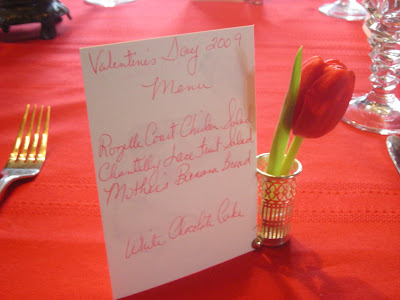 Valentine's Day 2009
Menu
Rozelle Court Chicken Salad
Chantilly Lace Fruit Salad
Mother's Banana Bread
White Chocolate Cake